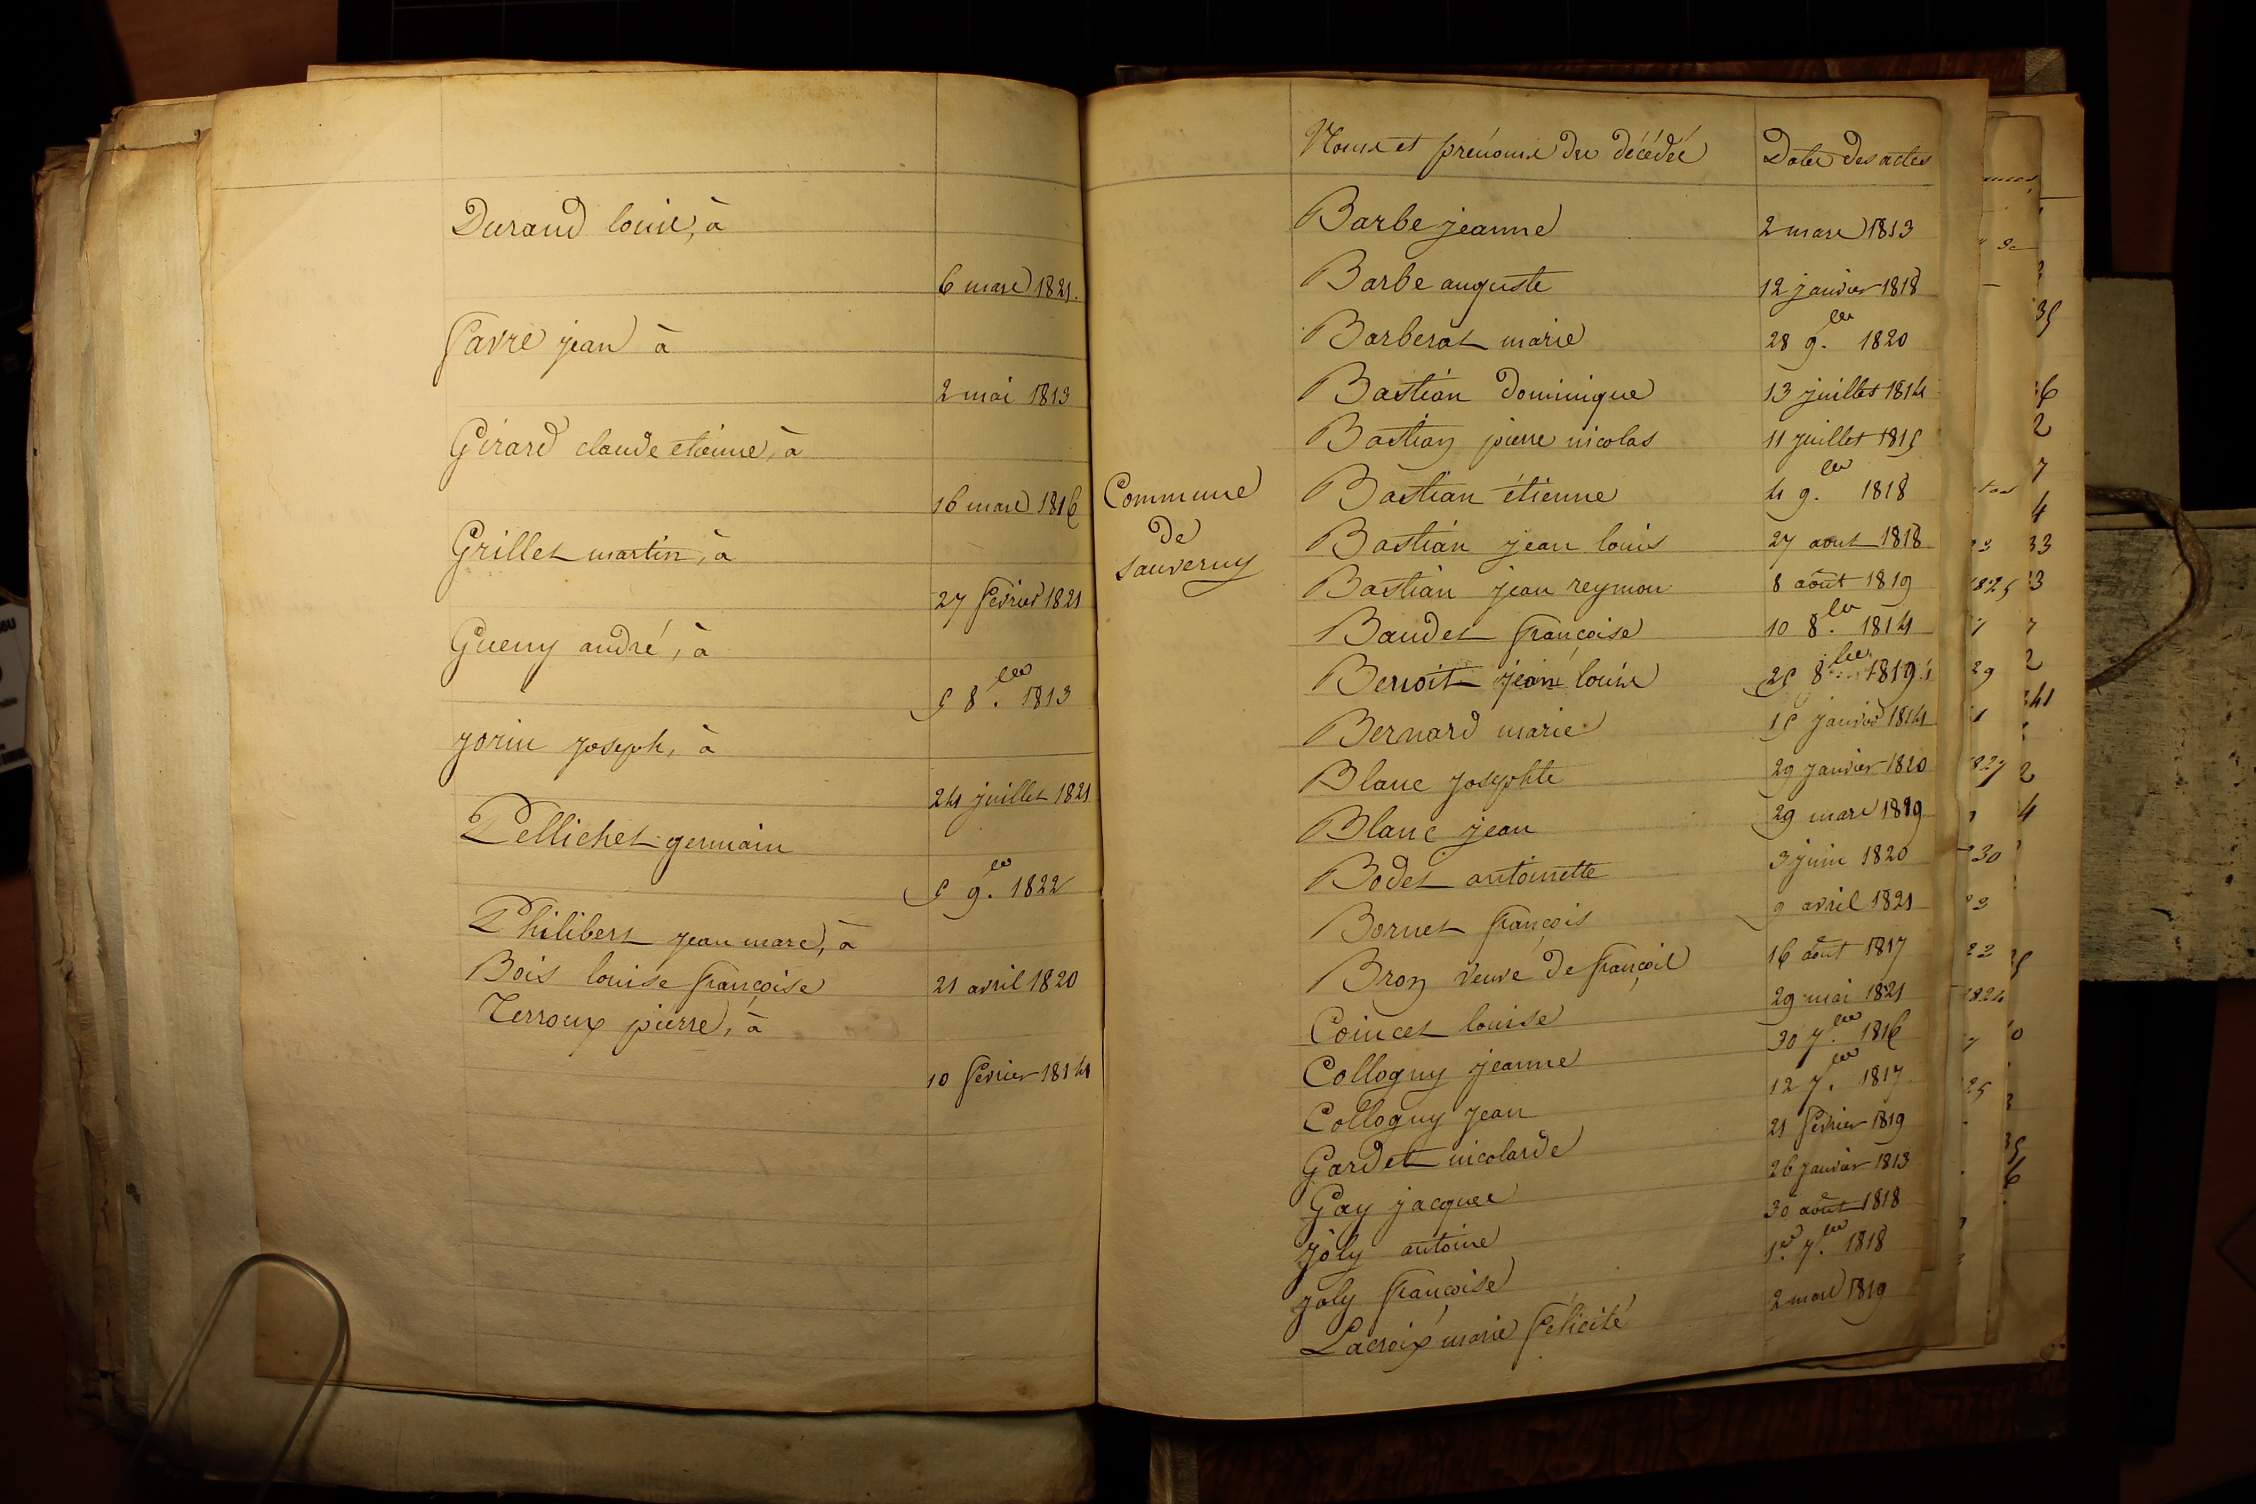 Durand louise, à
6 mars 1821.
favre jean à
2 mai 1813
Girard claude etienne, à
16 mars 1816
Grillet martin, à
27 fevrier 1821
Gueny andré, à
5 8.bre 1813
jorin joseph, à
24 juillet 1821
Pellichet germain
5 9.bre 1822
Philibert jean marc, à
Bois louise françoise 21 avril 1820
Terroux pierre, à
10 fevrier 1814
Noms et prénoms des décédés Dates des actes
Commune
de
Sauverny
Barbe jeanne 2 mars 1813
Barbe auguste 12 janvier 1818
Barberat marie 28 9.bre 1820
Bastian dominique 13 juillet 1814
Bastian pierre nicolas 11 juillet 1815
Bastian étienne 4 9.bre 1818
Bastian jean louis 27 aout 1818
Bastian jean reymon 8 août 1819
Baudet françoise 10 8.bre 1814
Benoit jean louis 25 8.bre 1819
Bernard marie 15 janvier 1814
Blanc josephte 29 janvier 1820
Blanc jean 29 mars 1819
Bodet antoinette 3 juin 1820
Bornet françois 9 avril 1821
Bron veuve de françois 16 août 1817
Coincet louise 29 mai 1821
Collogny jeanne 30 7.bre 1816
Collogny jean 12 7.bre 1817
Gardet nicolarde 21 février 1819
Gay jacques 26 janvier 1813
joly antoine 30 août 1818
joly françoise 1.er 7.bre 1818
Lacroix marie félicité 2 mars 1819